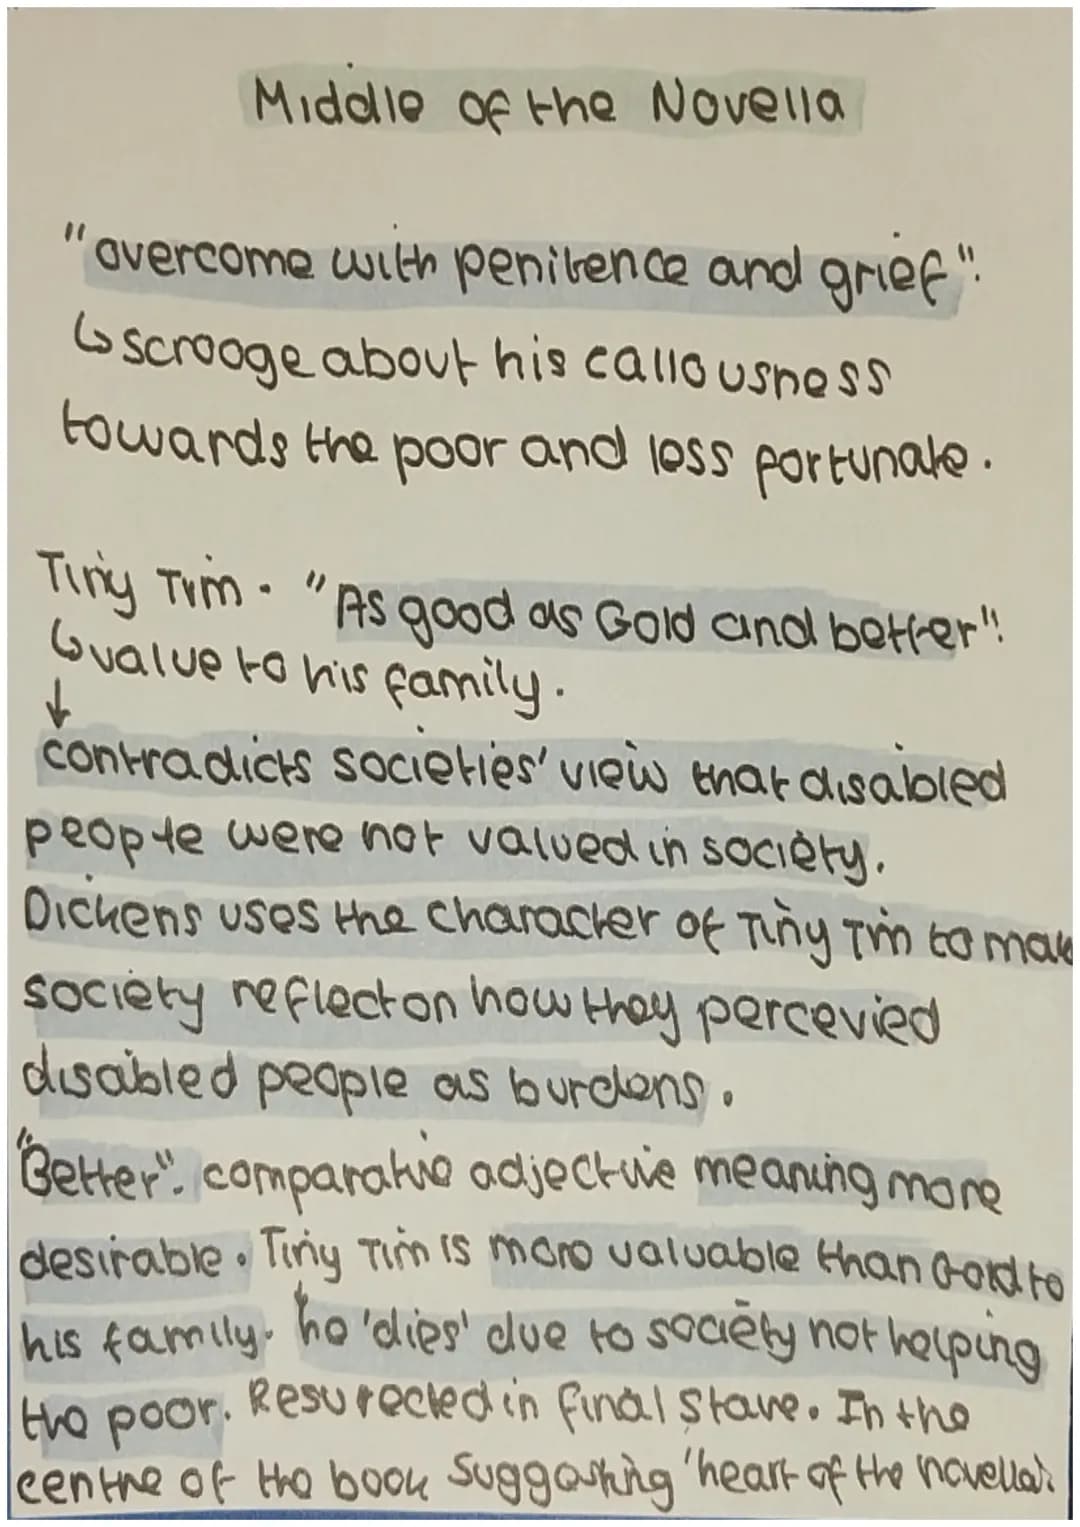 Middle of the Novella
"overcome with penitence and grief".
↳ scrooge about his callousness
towards the poor and less fortunate.
Tiny Tim - "As good as Gold and better".
↳ value to his family.
↓
contradicts societies' view that disabled
people were not valued in society.
Dickens uses the character of Tiny Tim to make
society reflect on how they percevied
disabled people as burdens.
"Better". comparative adjective meaning more
desirable. Tiny Tim is more valuable than Gold to
his family. he 'dies' due to society not helping
the poor. Resurected in final stave. In the
centre of the book suggesting 'heart of the novella'.